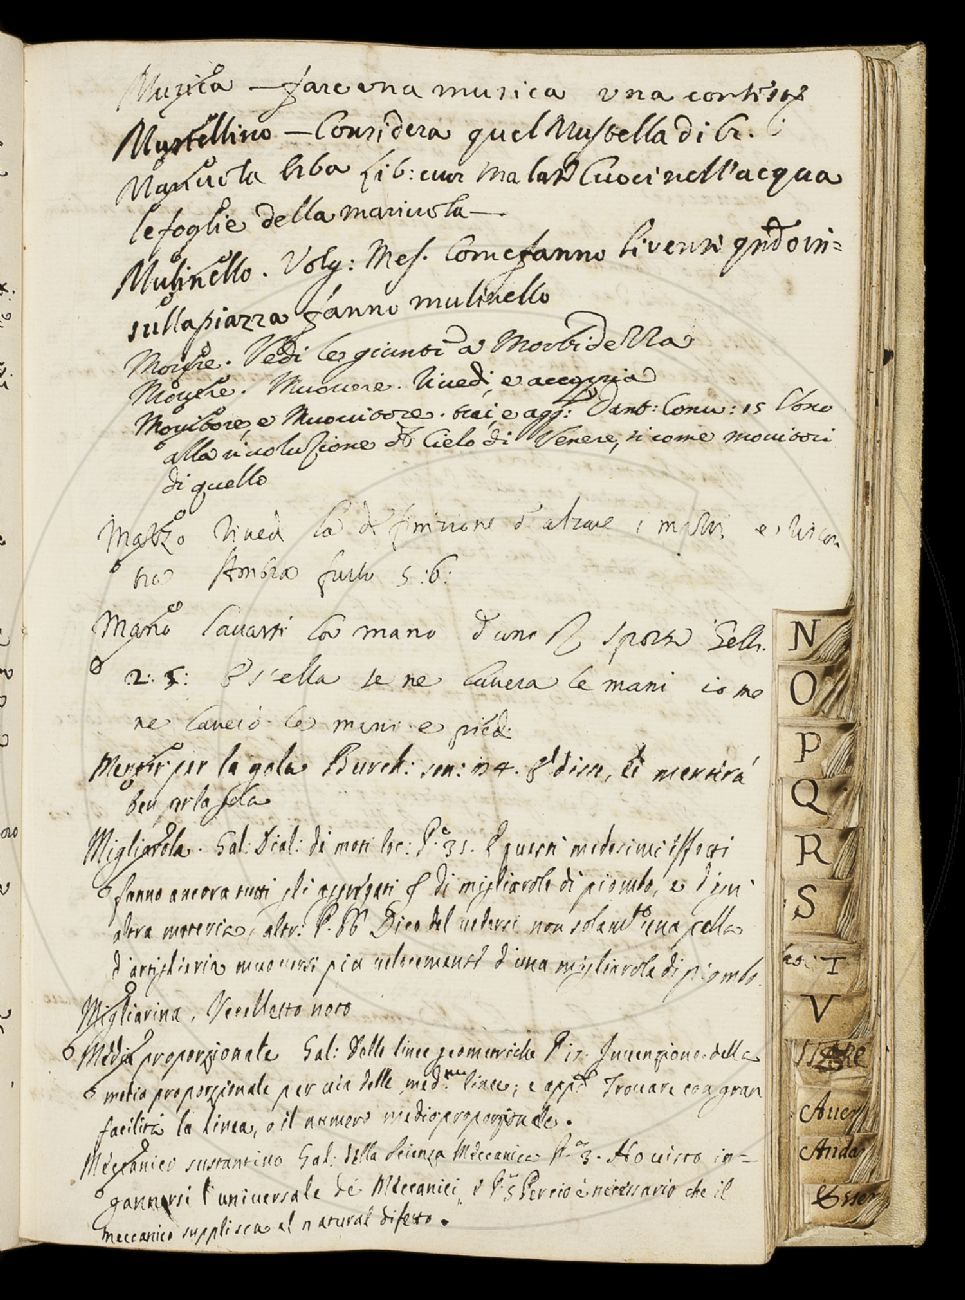 Musica — fare una musica una contis
Mustellino — Considera quel Mustella di Cr.
Maruvola erba Lib: cur malatt Cuoci nell'acqua
le foglie della maruvola —
Mulinello. Volg: Mes. Come fanno li venti qñdo in=
sulla piazza fanno mulinello
Morire. Vedi le giunte a Morbidezza
Movere. Muovere. Rivedi e accozzia
Movitore, e Muovitore. trai, e agg: Dant: Conv: 15 Sono
alla rivoluzione di Cielo di Venere, si come movitori
di quello
Mazzo Rived la definizione d' e
Ambra furto 5: 6:
Mano Lavarsi la mano d'uno Sporta Gell.
2: 5: S'ella se ne lavera le mani io me
ne laverò le mani e piedi
Mentir per la gola Burch: son: 114. disse, mentirà
ben per la gola
Migliarola. Gal: Dial: di moti loc: P. 31. E questi medesimi effetti
fanno ancora tutti gli di migliarole di piombo, e d'ogni
altra materia, altr: P. 86 Dico del vedersi non solam.te una palla
d'artiglieria muoversi più velocemente d'una migliarola di piombo.
Migliarina, Uccelletto noto
Media proporzionale Gal: Delle linee geometriche P 17. Invenzione della
media proporzionale per via delle med.me linee; e app.o Trovare con gran
facilità la linea, o il numero medio proporzionale.
Meccanico sustantivo Gal: della Scienza Meccanica P.a 3. Ho visto in=
gannarsi l'universale de Meccanici, e P.a 5 Perciò è necessario che il
meccanico supplisca al natural difetto.
N
O
P
Q
R
S
T
V
Aver
Anda
Esser